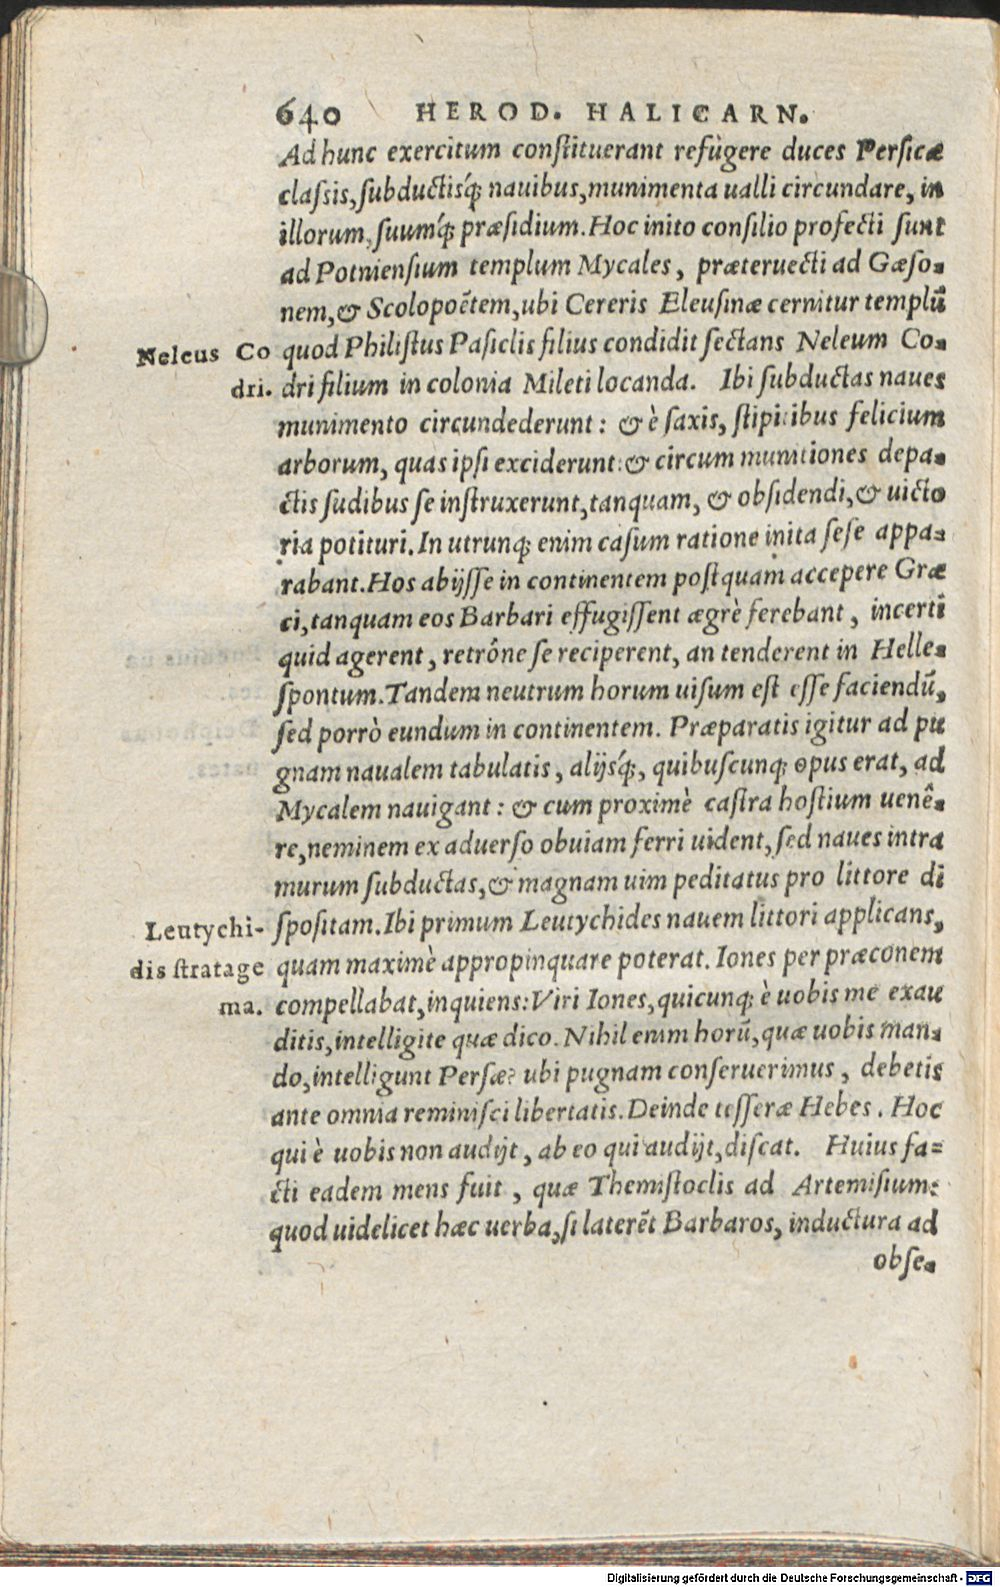 640 HEROD. HALICARN.
Ad hunc exercitum conſtituerant refùgere duces Perſicæ
claſsis, ſubductisq́ꝫ nauibus, munimenta ualli circundare, in
illorum, ſuumq́ꝫ præſidium. Hoc inito conſilio profecti ſunt
ad Potnienſium templum Mycales, præteruecti ad Gæſo-
nem, & Scolopoẽtem, ubi Cereris Eleuſinæ cernitur templũ
Neleus Co
dri.
quod Philiſtus Paſiclis filius condidit ſectans Neleum Co-
dri filium in colonia Mileti locanda. Ibi ſubductas naues
munimento circundederunt: & è ſaxis, ſtipitibus felicium
arborum, quas ipſi exciderunt: & circum munitiones depa-
ctis ſudibus ſe inſtruxerunt, tanquam, & obſidendi, & uicto
ria potituri. In utrunqꝫ enim caſum ratione inita ſeſe appa-
rabant. Hos abijſſe in continentem poſtquam accepere Græ
ci, tanquam eos Barbari effugiſſent ægrè ferebant, incerti
quid agerent, retrône ſe reciperent, an tenderent in Helle-
ſpontum. Tandem neutrum horum uiſum eſt eſſe faciendũ,
ſed porrò eundum in continentem. Præparatis igitur ad pu
gnam naualem tabulatis, alijsq́ꝫ, quibuſcunqꝫ opus erat, ad
Mycalem nauigant: & cum proximè caſtra hoſtium uenê-
re, neminem ex aduerſo obuiam ferri uident, ſed naues intra
murum ſubductas, & magnam uim peditatus pro littore di
Leutychi-
dis ſtratage
ma.
ſpoſitam. Ibi primum Leutychides nauem littori applicans,
quam maximè appropinquare poterat. Iones per præconem
compellabat, inquiens: Viri Iones, quicunqꝫ è uobis me exau
ditis, intelligite quæ dico. Nihil enim horũ, quæ uobis man-
do, intelligunt Perſæ? ubi pugnam conſeruerimus, debetis
ante omnia reminiſci libertatis. Deinde teſſeræ Hebes. Hoc
qui è uobis non audijt, ab eo qui audijt, diſcat. Huius fa-
cti eadem mens fuit, quæ Themiſtoclis ad Artemiſium:
quod uidelicet hæc uerba, ſi laterẽt Barbaros, inductura ad
obſe-
Digitalisierung gefördert durch die Deutsche Forschungsgemeinschaft - DFG